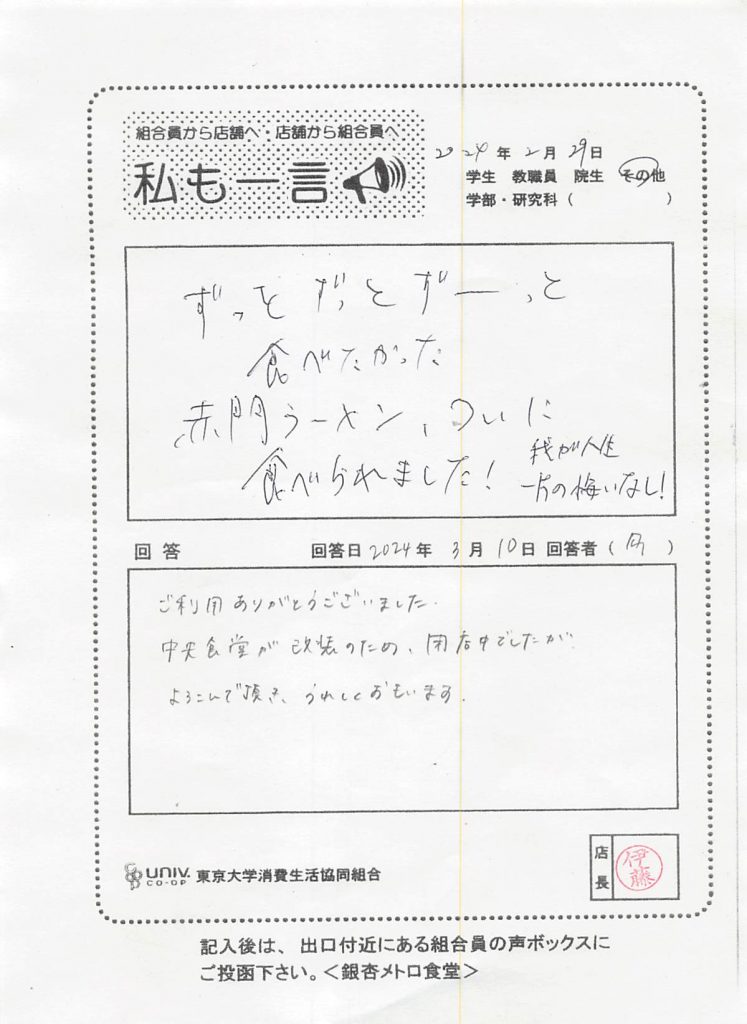 組合員から店舗へ・店舗から組合員へ
私も一言
2024年2月29日
学生 教職員 院生 その他
学部・研究科( )
ずっとずっとずーっと
食べたかった
赤門ラーメン、ついに
食べられました!
我が人生
一片の悔いなし!
回答 回答日 2024年 3月 10日 回答者( )
ご利用ありがとうございました.
中央食堂が改装のため、閉店中でしたが
よろこんで頂き、うれしくおもいます.
UNIV. CO-OP 東京大学消費生活協同組合
店長 伊藤
記入後は、出口付近にある組合員の声ボックスに
ご投函下さい。<銀杏メトロ食堂>